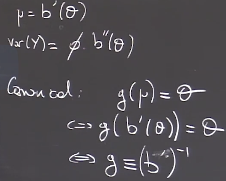 μ = b'(θ)
var(Y) = φ b''(θ)
Canonical: g(μ) = θ
⇔ g(b'(θ)) = θ
⇔ g ≡ (b')⁻¹